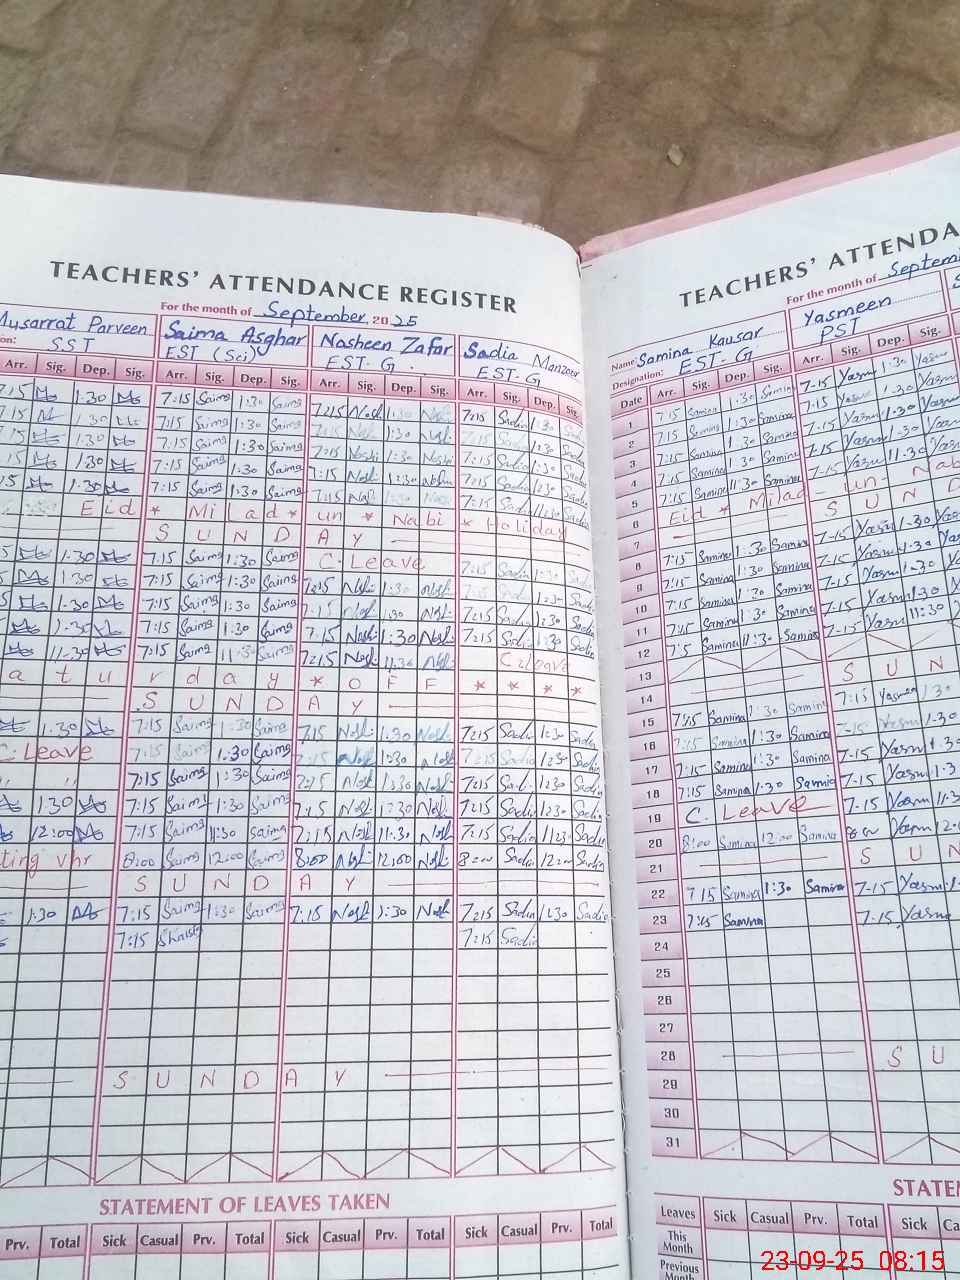 TEACHERS' ATTENDANCE REGISTER
For the month of September, 2025
Musarrat Parveen Saima Asghar Nosheen Zafar Sadia Manzoor
SST EST (Sci) EST-G EST-G
Arr. Sig. Dep. Sig. Arr. Sig. Dep. Sig. Arr. Sig. Dep. Sig. Arr. Sig. Dep. Sig.
7:15 1:30 7:15 Saima 1:30 Saima 7:15 Nosh 1:30 7:15 Sadia 1:30 Sadia
7:15 1:30 7:15 Saima 1:30 Saima 7:15 1:30 Sadia
7:15 Saima 1:30 Saima 7:15 1:30 7:15 Sadia 1:30 Sadia
7:15 1:30 7:15 Saima 1:30 Saima 7:15 1:30 7:15 Sadia 1:30 Sadia
11:30 7:15 Saima 11:30 Saima 7:15 7:15 Sadia 11:30 Sadia
Eid * Milad * un * Nabi * Holiday
SUNDAY
1:30 7:15 Saima 1:30 Saima C. Leave 7:15 Sadia 1:30 Sadia
1:30 7:15 Saima 1:30 Saima 7:15 Nosh 1:30 Nosh 1:30
1:30 7:15 Saima 1:30 Saima 7:15 Nosh 1:30 Nosh 7:15 Sadia 1:30 Sadia
1:30 7:15 Saima 1:30 Saima 7:15 Nosh 1:30 Nosh 7:15 1:30 Sadia
11:30 7:15 Saima 11:30 Saima 7:15 Nosh 11:30 Nosh C. Leave
a t u r d a y * O F F * * * *
SUNDAY
1:30 7:15 Saima 1:30 Saima 7:15 Nosh 1:30 Nosh 7:15 Sadia 1:30 Sadia
C. Leave 7:15 Saima 1:30 Saima 7:15 Nosh 1:30 Nosh 7:15 Sadia 1:30 Sadia
" " 7:15 Saima 1:30 Saima 7:15 Nosh 1:30 Nosh 7:15 Sadia 1:30 Sadia
1:30 7:15 Saima 1:30 Saima 7:15 Nosh 1:30 Nosh 7:15 Sadia 1:30 Sadia
12:00 7:15 Saima 11:30 Saima 7:15 Nosh 11:30 Nosh 7:15 Sadia 11:30 Sadia
8:00 Saima 12:00 Saima 8:00 Nosh 12:00 Nosh 8:00 Sadia 12:00 Sadia
SUNDAY
1:30 7:15 Saima 1:30 Saima 7:15 Nosh 1:30 Nosh 7:15 Sadia 1:30 Sadia
7:15 7:15 Sadia
SUNDAY
STATEMENT OF LEAVES TAKEN
Prv. Total Sick Casual Prv. Total Sick Casual Prv. Total Sick Casual Prv. Total
TEACHERS' ATTENDA
For the month of Septem
Name: Samina Kausar Yasmeen
Designation: EST-G PST
Date Arr. Sig. Dep. Sig. Arr. Sig. Dep. Sig.
1 7:15 Samina 1:30 Samina 7-15 Yasm 1:30 Yasm
2 7:15 Samina 1:30 Samina 7-15 Yasm 1-30 Yasm
3 7:15 Samina 1:30 Samina 7-15 Yasm 1-30 Yasm
4 7:15 Samina 1:30 Samina 7-15 Yasm 1-30 Yasm
5 7:15 Samina 11:30 Samina 7-15 Yasm 11-30 Yasm
6 Eid * Milad - un - Nab
7 S U N D
8 7:15 Samina 1:30 Samina 7-15 Yasm 1-30 Yasm
9 7:15 Samina 1:30 Samina 7-15 Yasm 1-30 Yasm
10 7:15 Samina 1:30 Samina 7-15 Yasm 1-30 Yasm
11 7:15 Samina 1:30 Samina 7-15 Yasm 1:30 Yasm
12 7:15 Samina 11:30 Samina 7-15 Yasm 11:30
13
14 S U N
15 7:15 Samina 1:30 Samina 7:15 Yasmeen 1:30
16 7:15 Samina 1:30 Samina 7-15 Yasm 1-30
17 7:15 Samina 1:30 Samina 7-15 Yasm 1-30
18 7:15 Samina 1:30 Samina 7-15 Yasm 1-3
19 C. Leave 7-15 Yasm 11-3
20 8:00 Samina 12:00 Samina Yasm 12-0
21 S U N
22 7:15 Samina 1:30 Samina 7-15 Yasm 1-
23 7:15 Samina 7-15 Yasm
24
25
26
27
28 S U
29
30
31
STATEM
Leaves Sick Casual Prv. Total Sick Ca
This Month
Previous Month
23-09-25 08:15